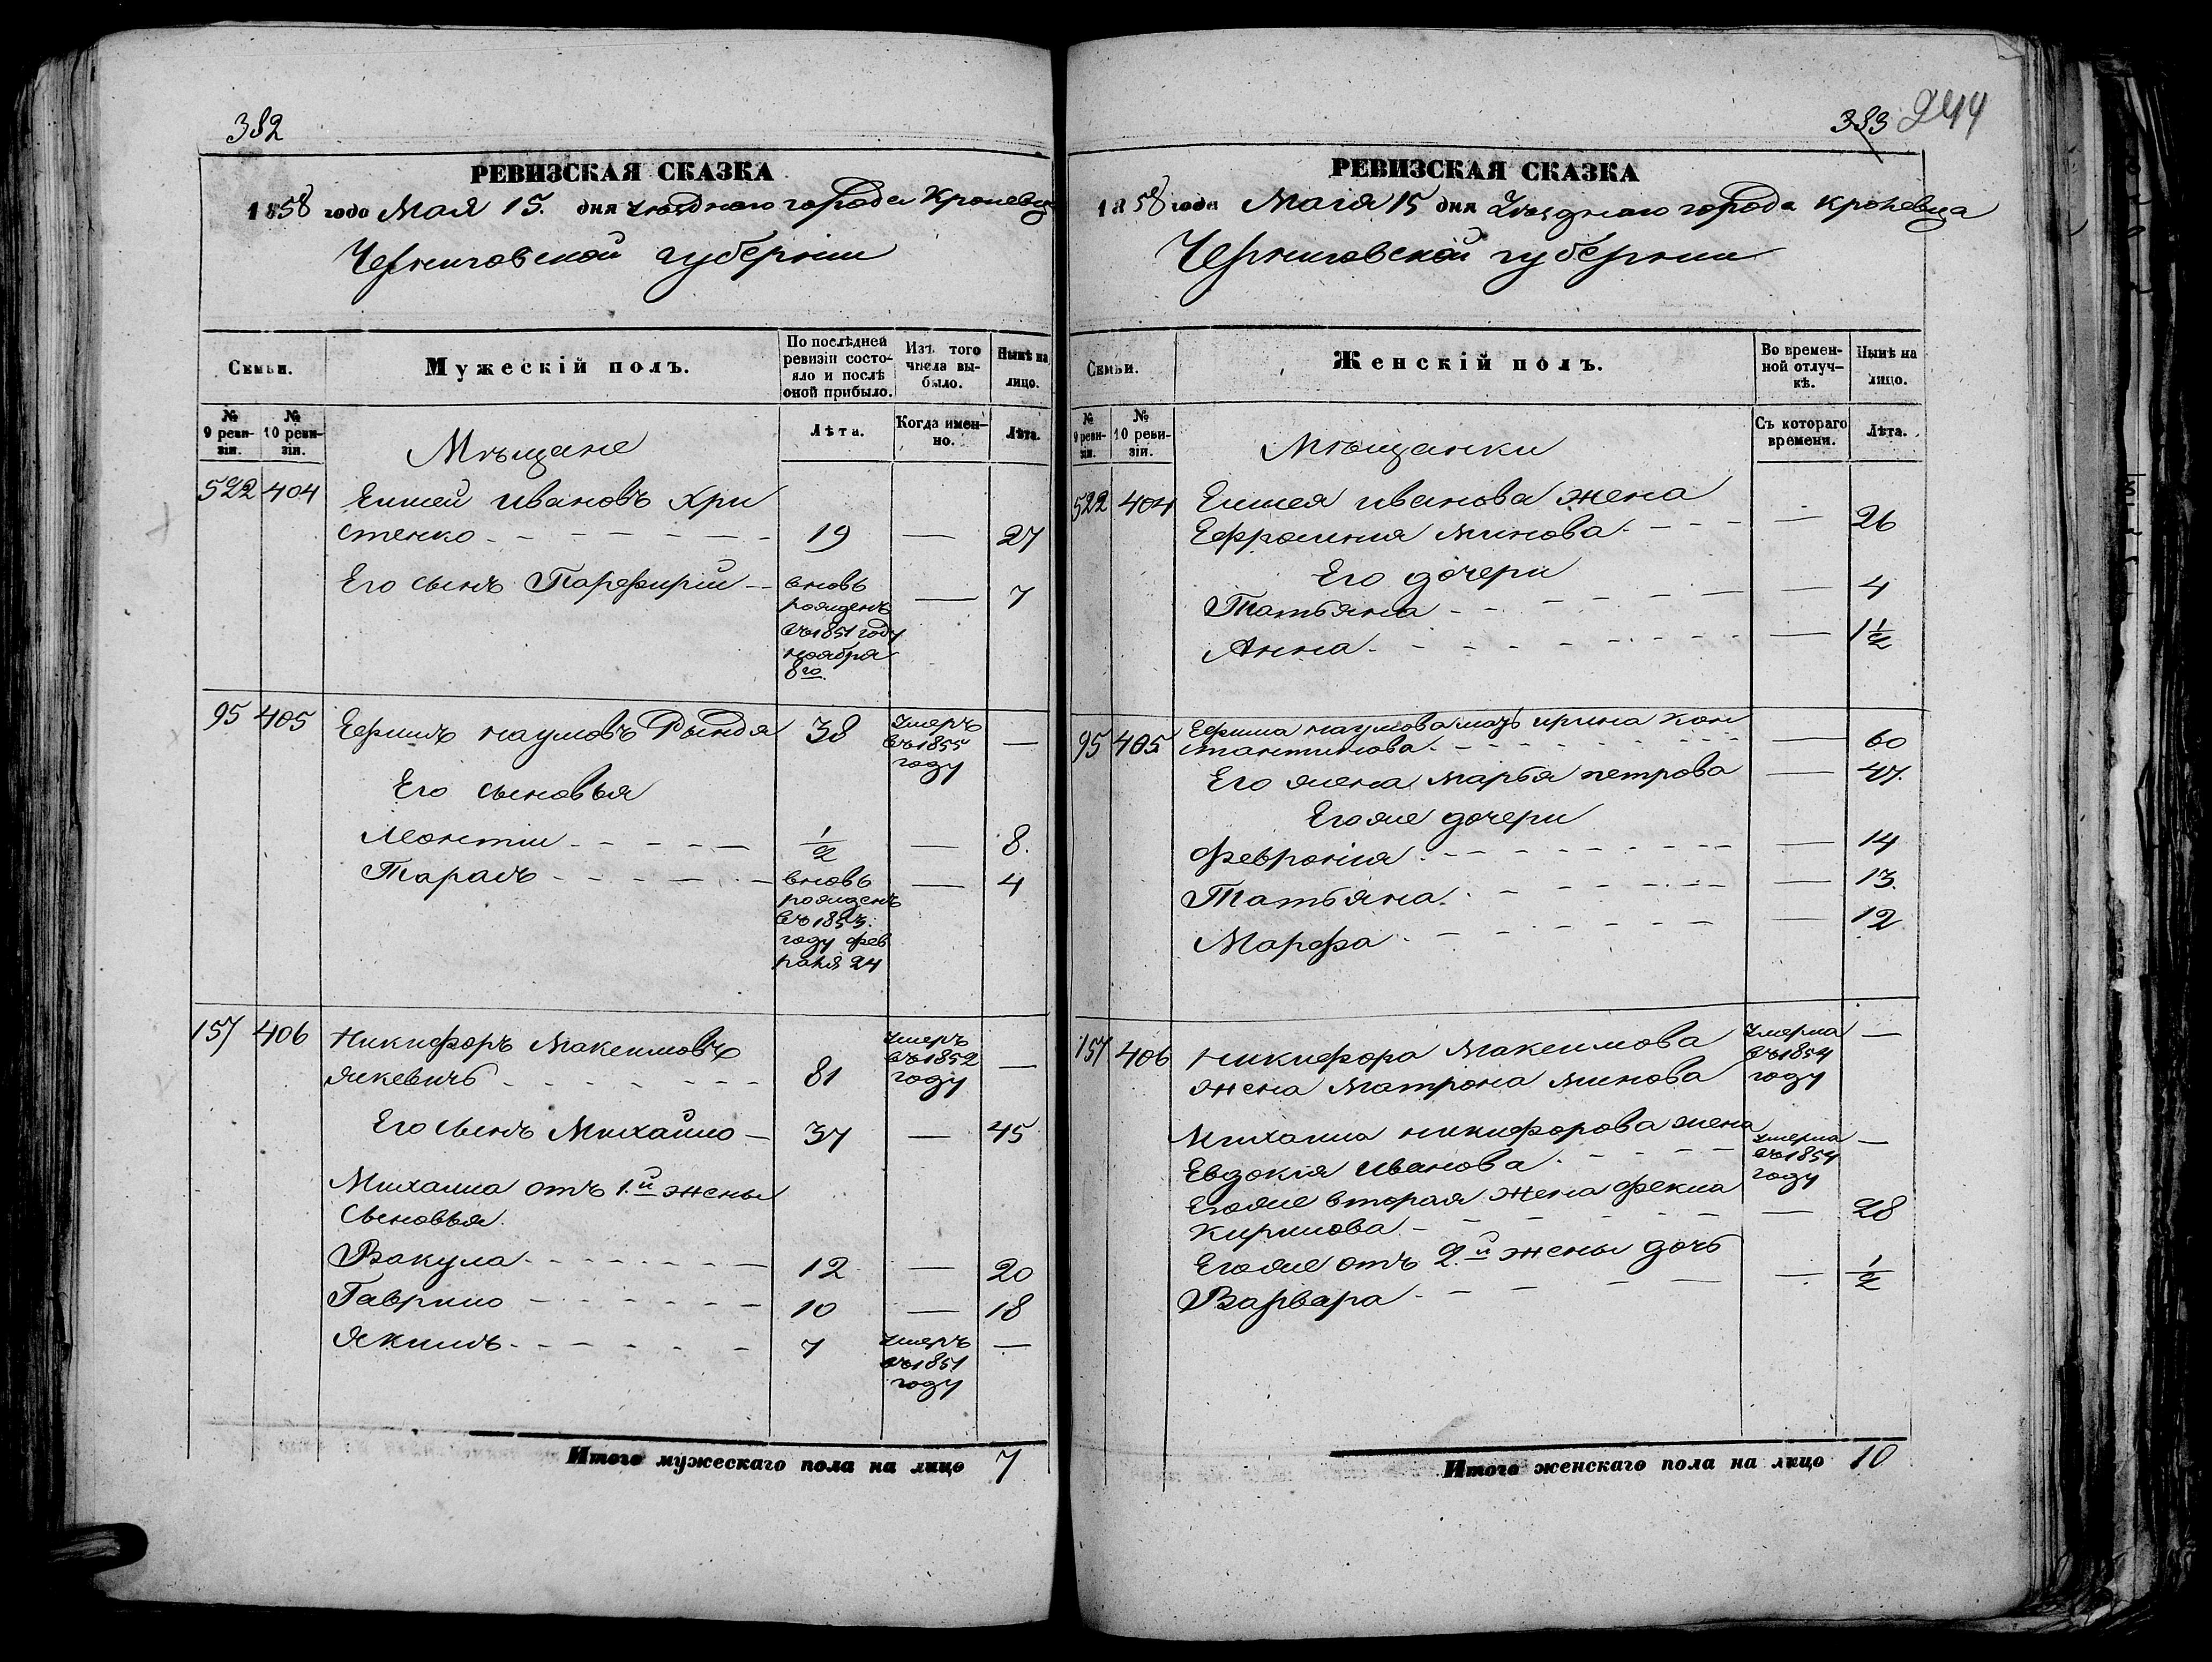 382
РЕВИЗСКАЯ СКАЗКА
1858 года Мая 15. дня уѣзднаго города Кролевца
Черниговской губерніи
Семьи.
Мужескій полъ.
По послѣдней ревизіи состояло и послѣ оной прибыло.
Изъ того числа выбыло.
Нынѣ на лицо.
№ 9 ревизіи.
№ 10 ревизіи.
Лѣта.
Когда именно.
Лѣта.
Мѣщане
522 404 Елисей Ивановъ Хри
стенко 19 — 27
Его сынъ Парфирій — вновь
рожденъ — 7
въ 1851 году
ноября
8го.
95 405 Ефимъ Наумовъ Рында 38 умеръ —
въ 1855
году
Его сыновья
Леонтій 1/2 — 8.
Тарасъ вновь — 4
рожденъ
въ 1854:
году фев
раля 24
157 406 Никифоръ Максимовъ умеръ
въ 1852
Яцкевичъ 81 году —
Его сынъ Михайло — 37 — 45
Михаила отъ 1.й жены
сыновья.
Вакула 12 — 20
Гаврило 10 — 18
Якимъ 7 умеръ —
въ 1851
году
Итого мужескаго пола на лицо 7
383 244
РЕВИЗСКАЯ СКАЗКА
1858 года Маія 15 дня Уѣзднаго города Кролевца
Черниговской губерніи
Семьи.
Женскій полъ.
Во временной отлучкѣ.
Нынѣ на лицо.
№ 9 ревизіи.
№ 10 ревизіи.
Съ котораго времени.
Лѣта.
Мѣщанки
522 404 Елисея Иванова жена
Ефросинія Минова — 26
Его дочери
Татьяна — 4
Анна — 1 1/2
95 405 Ефима Наумова мать Ирина Кон
стантинова — 60
Его жена Марья Петрова — 47.
Егоже дочери
Февронія — 14
Татьяна — 13.
Марфа — 12
157 406 Никифора Максимова умерла —
въ 1854
жена Матрона Минова году
Михаила Никифорова жена умерла —
въ 1854
Евдокія Иванова году
Егоже вторая жена Фекла
Кирилова — 28
Егоже отъ 2.й жены дочь
Варвара — 1/2
Итого женскаго пола на лицо 10